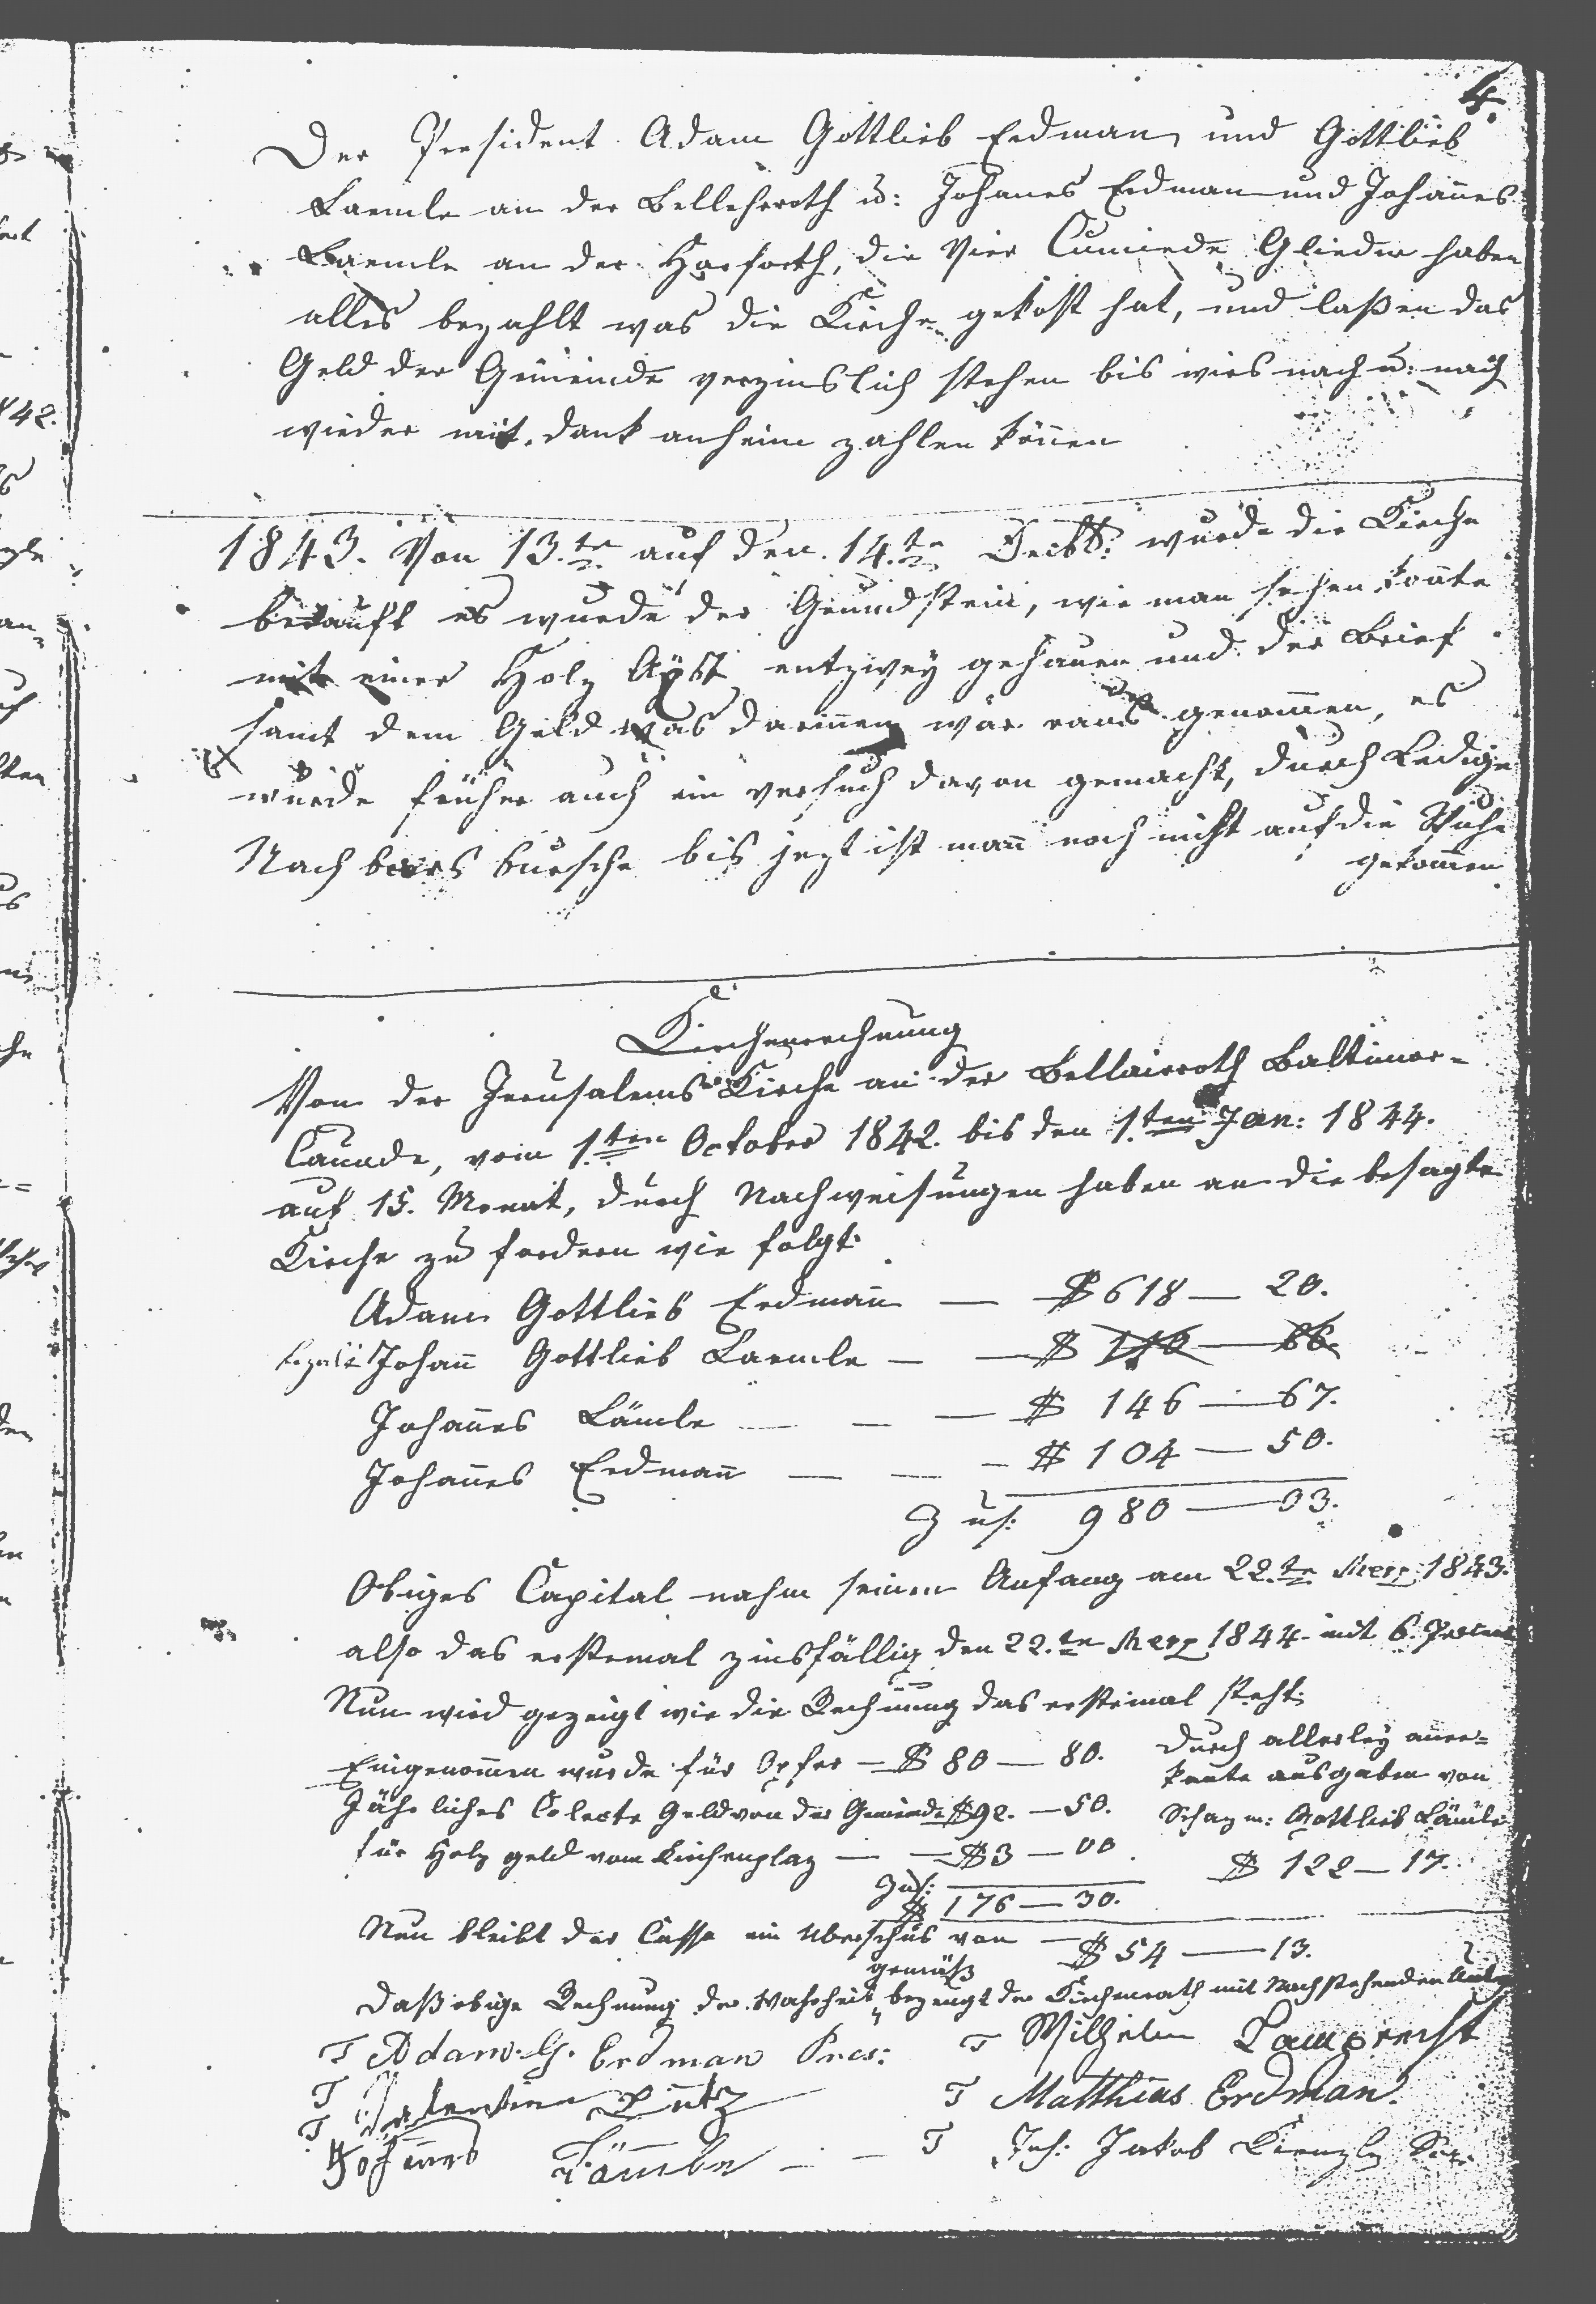 4.
Der President Adam Gottlieb Erdman, und Gottlieb
Laemle an der Bellehrroth u: Johanes Erdman und Johañes
Laemle an der Harforth, die Vier Cumiede Glieder haben
alles bezahlt was die Kirche gekost hat, und laßen das
Geld der Gemeinde verzinslich stehen bis wirs nach u: nach
wieder mit dank anheim zahlen köñen
1843. Von 13.ten auf den 14.ten Decbt: wurde die Kirche
beraubt es wurde der Grundstein, wie man sehen koñte
mit einer Holz Axt entzwey gehauen und der Brief
samt dem Geld was dariñen war raus genom̄en, es
wurde früher auch ein versuch davon gemacht, durch Ledige
Nachbars bursche bis jezt ist mañ noch nicht auf die Ruhe
gekom̄en
Kirchenrechnung
Von der Jerusalems Kirche an der Bellairroth Baltimor-
Caunde, vom 1.ten October 1842. bis den 1.ten Jan: 1844.
auf 15. Monat, durch Nachweisungen haben an die besagte
Kirche zu fordern wie folgt:
Adam Gottlieb Erdmañ — $ 618 — 20.
bezalt Johañ Gottlieb Laemle — — $ 110 — 66.
Johañes Lämle — — — $ 146 — 67.
Johañes Erdmañ — — — $ 104 — 50.
Zus: 980 — 03.
Obiges Capital nahm seinen Anfang am 22.ten Merz 1843.
also das erstemal zinsfällig den 22.ten Merz 1844. mit 6. Procent
Nun wird gezeigt wie die Rechnung das erstemal steht:
Eingenom̄en wurde für Opfer — $ 80 — 80.
Jährliches Colecte Geld von der Gemeinde $ 92. — 50.
für Holz geld vom Kirchenplaz — — $ 3 — 00.
Zus: $ 176 — 30.
Durch allerley aner=
kante ausgaben von
Schazm: Gottlieb Lämle
$ 122 — 17.
Nun bleibt der Casse ein Uberschus von — $ 54 — 13.
Daß obige Rechnung der Wahrheit gemäß bezeugt der Kirchenrath mit Nachstehenden
T Adam. G. Erdman Pres:
T Valentien Lutz
T Johañes Läm̄le — —
T Wilhelm Lamprecht
T Matthias Erdman.
T Joh: Jakob Kienzle Secr.